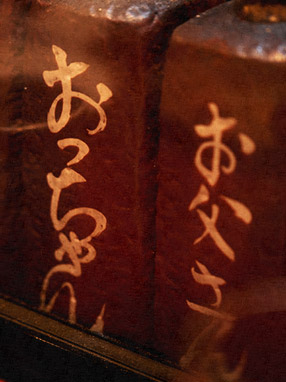 お父さん
おっちゃん